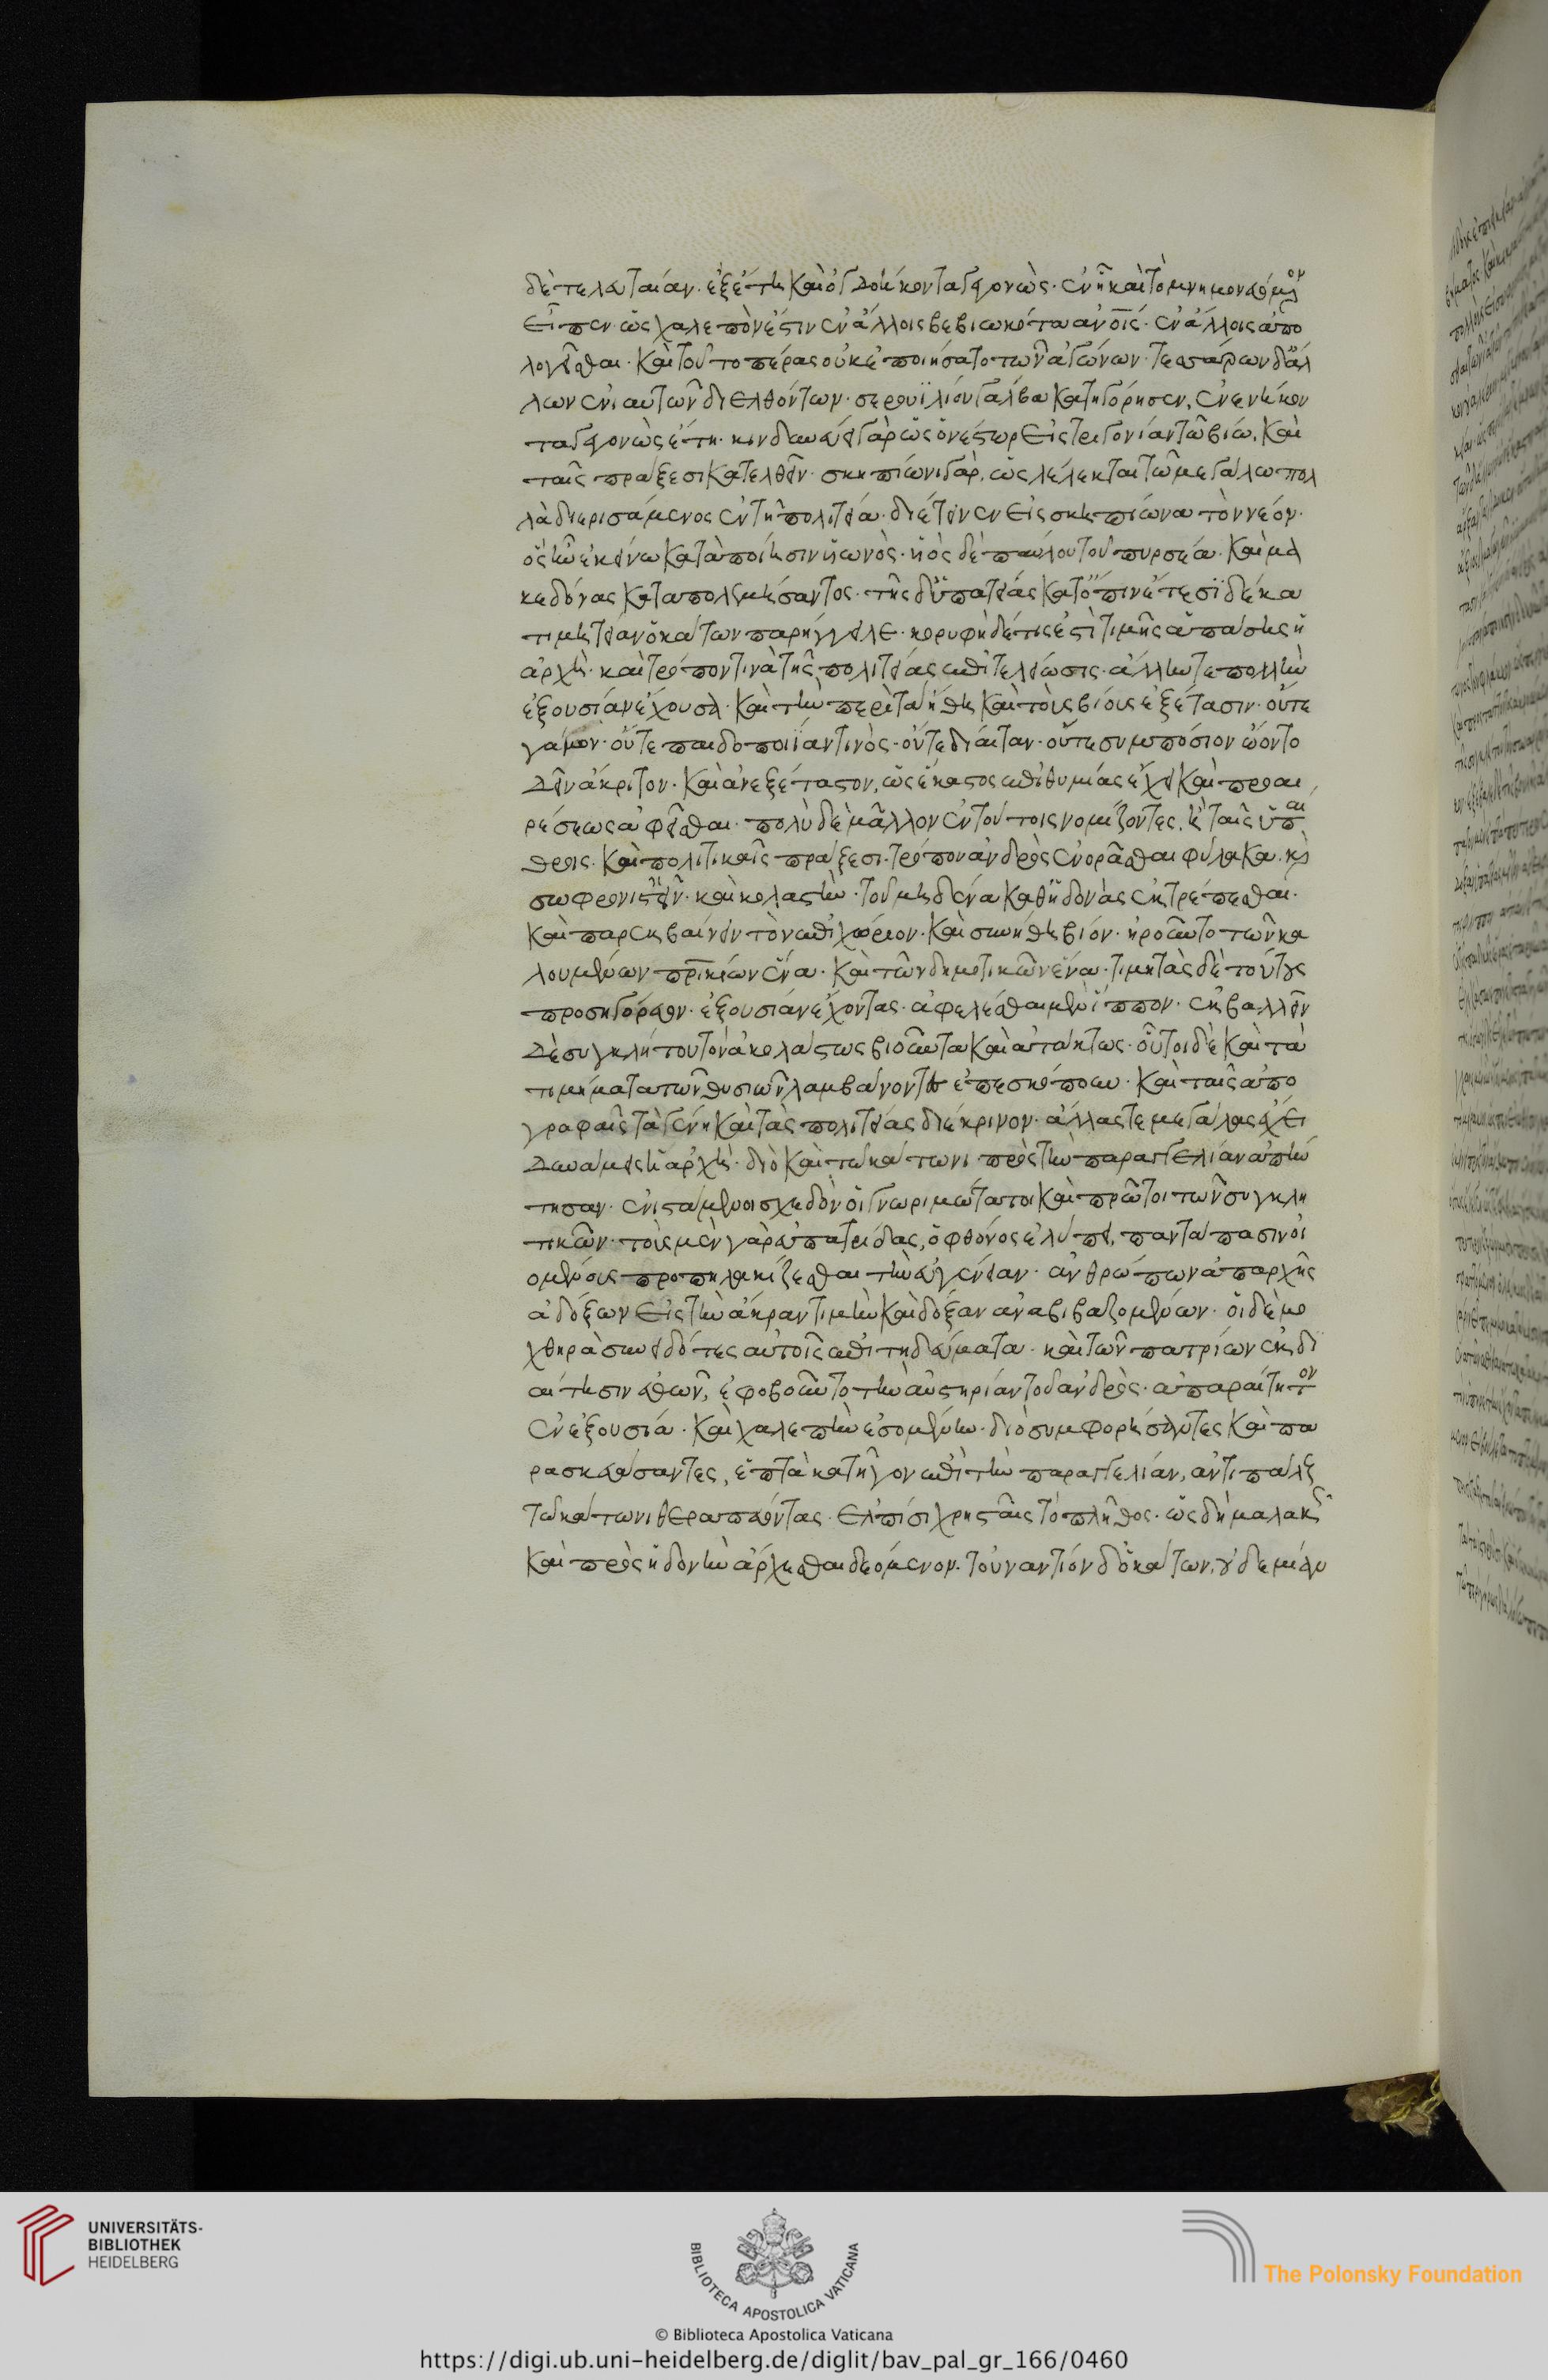 δὲ τελευταίαν· ἓξ ἔτη καὶ ὀγδοήκοντα γεγονὼς· ἐν ᾗ καὶ τὸ μνημονευόμενον
εἶπεν· ὡς χαλεπὸν ἐστιν ἐν ἄλλοις βεβιωκότα ἀνοις· ἐν ἄλλοις ἀπο
λογεῖσθαι· καὶ τοῦτο πέρας οὐκ ἐποιήσατο τῶν ἀγώνων· τεσσάρων δ' ἄλ
λων ἐνιαυτῶν διελθόντων· σερουϊλίου γάλβα κατηγόρησεν, ἐνενήκον
τα γεγονὼς ἔτη· κινδυνεύει γὰρ ὡς ὁ νέστωρ εἰς τριγονίαν τῶ βίω, καὶ
ταῖς πράξεσι κατελθεῖν· σκηπίωνι γὰρ, ὡς λέλεκται τῶ μεγάλω πολ
λὰ διερισάμενος ἐν τῆ πολιτεία· διέτεινεν εἰς σκηπίωνα τὸν νέον·
ὃς ἦν ἐκείνω κατὰ ποίησιν υἱωνὸς· υἱὸς δὲ παύλου τοῦ περσέα· καὶ μα
κεδόνας καταπολεμήσαντος· τῆς δ' ὑπατείας κατόπιν ἔτεσι δέκα
τιμητείαν ὁ κάτων παρήγγειλε· κορυφὴ δέ τις ἐστὶ τιμῆς ἁπάσης ἡ
ἀρχή· καὶ τρόπον τινὰ τῆς πολιτείας ἐπιτελείωσις· ἄλλην τε πολλὴν
ἐξουσίαν ἔχουσα· καὶ τὴν περὶ τὰ ἤθη καὶ τοὺς βίους ἐξέτασιν· οὔτε
γάμον· οὔτε παιδοποιΐαν τινὸς· οὔτε δίαιταν· οὔτε συμπόσιον ὤοντο
δεῖν ἄκριτον· καὶ ἀνεξέταστον, ὡς ἕκαστος ἐπιθυμίας ἔχει καὶ προαι
ρέσεως ἀφεῖσθαι· πολὺ δὲ μᾶλλον ἐν τούτοις νομίζοντες, ἢ ταῖς ὑπαι
θροις· καὶ πολιτικαῖς πράξεσι· τρόπον ἀνδρὸς ἐνορᾶσθαι φύλακα· καὶ
σωφρονιστὴν· καὶ κολαστὴν· τοῦ μηδένα καθ' ἡδονὰς ἐκτρέπεσθαι·
καὶ παρεκβαίνειν τὸν ἐπιχώριον· καὶ συνήθη βίον· ἡροῦντο τῶν κα
λουμένων πρικίων ἕνα· καὶ τῶν δημοτικῶν ἕνα· τιμητὰς δὲ τούτους
προσηγόρευον· ἐξουσίαν ἔχοντας· ἀφελέσθαι μὲν ἵππον· ἐκβαλλεῖν
δὲ συγκλήτου τὸν ἀκολάστως βιοῦντα καὶ ἀτάκτως· οὗτοι δὲ καὶ τὰ
τιμήματα τῶν θυσιῶν λαμβάνοντες ἐπεσκόπουν· καὶ ταῖς ἀπο
γραφαῖς τὰ γένη καὶ τὰς πολιτείας διέκρινον· ἄλλας τε μεγάλας ἔχει
δυνάμεις ἡ ἀρχή· διὸ καὶ τῶ κάτωνι πρὸς τὴν παραγγελίαν ἀπήν
τησαν· ἐνιστάμενοι σχεδὸν οἱ γνωριμώτατοι καὶ πρῶτοι τῶν συγκλη
τικῶν· τοὺς μὲν γὰρ εὐπατρίδας, ὁ φθόνος ἐλύπει, παντάπασιν οἰ
ομένους προπηλακίζεσθαι τὴν εὐγένειαν· ἀνθρώπων ἀπ' ἀρχῆς
ἀδόξων εἰς τὴν ἄκραν τιμὴν καὶ δόξαν ἀναβιβαζομένων· οἱ δὲ μο
χθηρὰ συνειδότες αὑτοῖς ἐπιτηδεύματα· καὶ τῶν πατρίων ἐκδι
αίτησιν ἐθῶν, ἐφοβοῦντο τὴν αὐστηρίαν τοῦ ἀνδρὸς· ἀπαραίτητον
ἐν ἐξουσία· καὶ χαλεπὴν ἐσομένην· διὸ συμφορήσαντες καὶ πα
ρασκευάσαντες, ἑπτὰ κατῆγον ἐπὶ τὴν παραγγελίαν, ἀντιπάλους
τῶ κάτωνι θεραπεύοντας· ἐλπίσι χρησταῖς τὸ πλῆθος· ὡς δὴ μαλακῶς
καὶ πρὸς ἡδονὴν ἄρχεσθαι δεόμενον. τοὐναντίον δ' ὁ κάτων, οὐδεμίαν
UNIVERSITÄTS-
BIBLIOTHEK
HEIDELBERG
BIBLIOTECA APOSTOLICA VATICANA
The Polonsky Foundation
© Biblioteca Apostolica Vaticana
https://digi.ub.uni-heidelberg.de/diglit/bav_pal_gr_166/0460